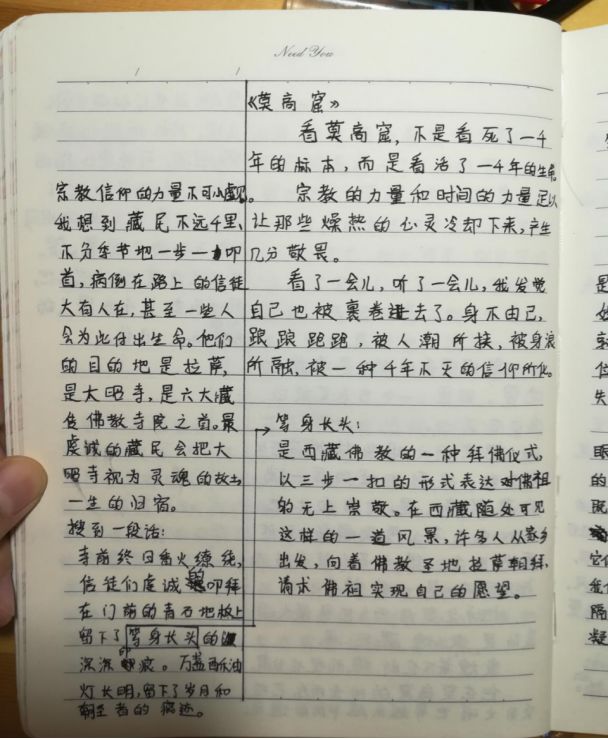 Need You
《莫高窟》
看莫高窟，不是看死了一千
年的标本，而是看活了一千年的生命
。宗教的力量和时间的力量足以
让那些燥热的心灵冷却下来，产生
几分敬畏。
看了一会儿，听了一会儿，我发觉
自己也被裹卷进去了。身不由己，
踉踉跄跄，被人潮所挟，被身浪
所融，被一种千年不灭的信仰所化。
等身长头：
是西藏佛教的一种拜佛仪式，
以三步一扣的形式表达对佛祖
的无上崇敬。在西藏随处可见
这样的一道风景，许多人从家乡
出发，向着佛教圣地拉萨朝拜，
请求佛祖实现自己的愿望。
宗教信仰的力量不可小觑。
我想到藏民不远千里，
不分季节地一步一叩
首，病倒在路上的信徒
大有人在，甚至一些人
会为此付出生命。他们
的目的地是拉萨，
是大昭寺，是六大藏
传佛教寺院之首。最
虔诚的藏民会把大
昭寺视为灵魂的故土
一生的归宿。
搜到一段话：
寺前终日香火缭绕，
信徒们虔诚的叩拜
在门前的青石地板上
留下了等身长头的
深深印痕。万盏酥油
灯长明，留下了岁月和
朝圣者的痕迹。